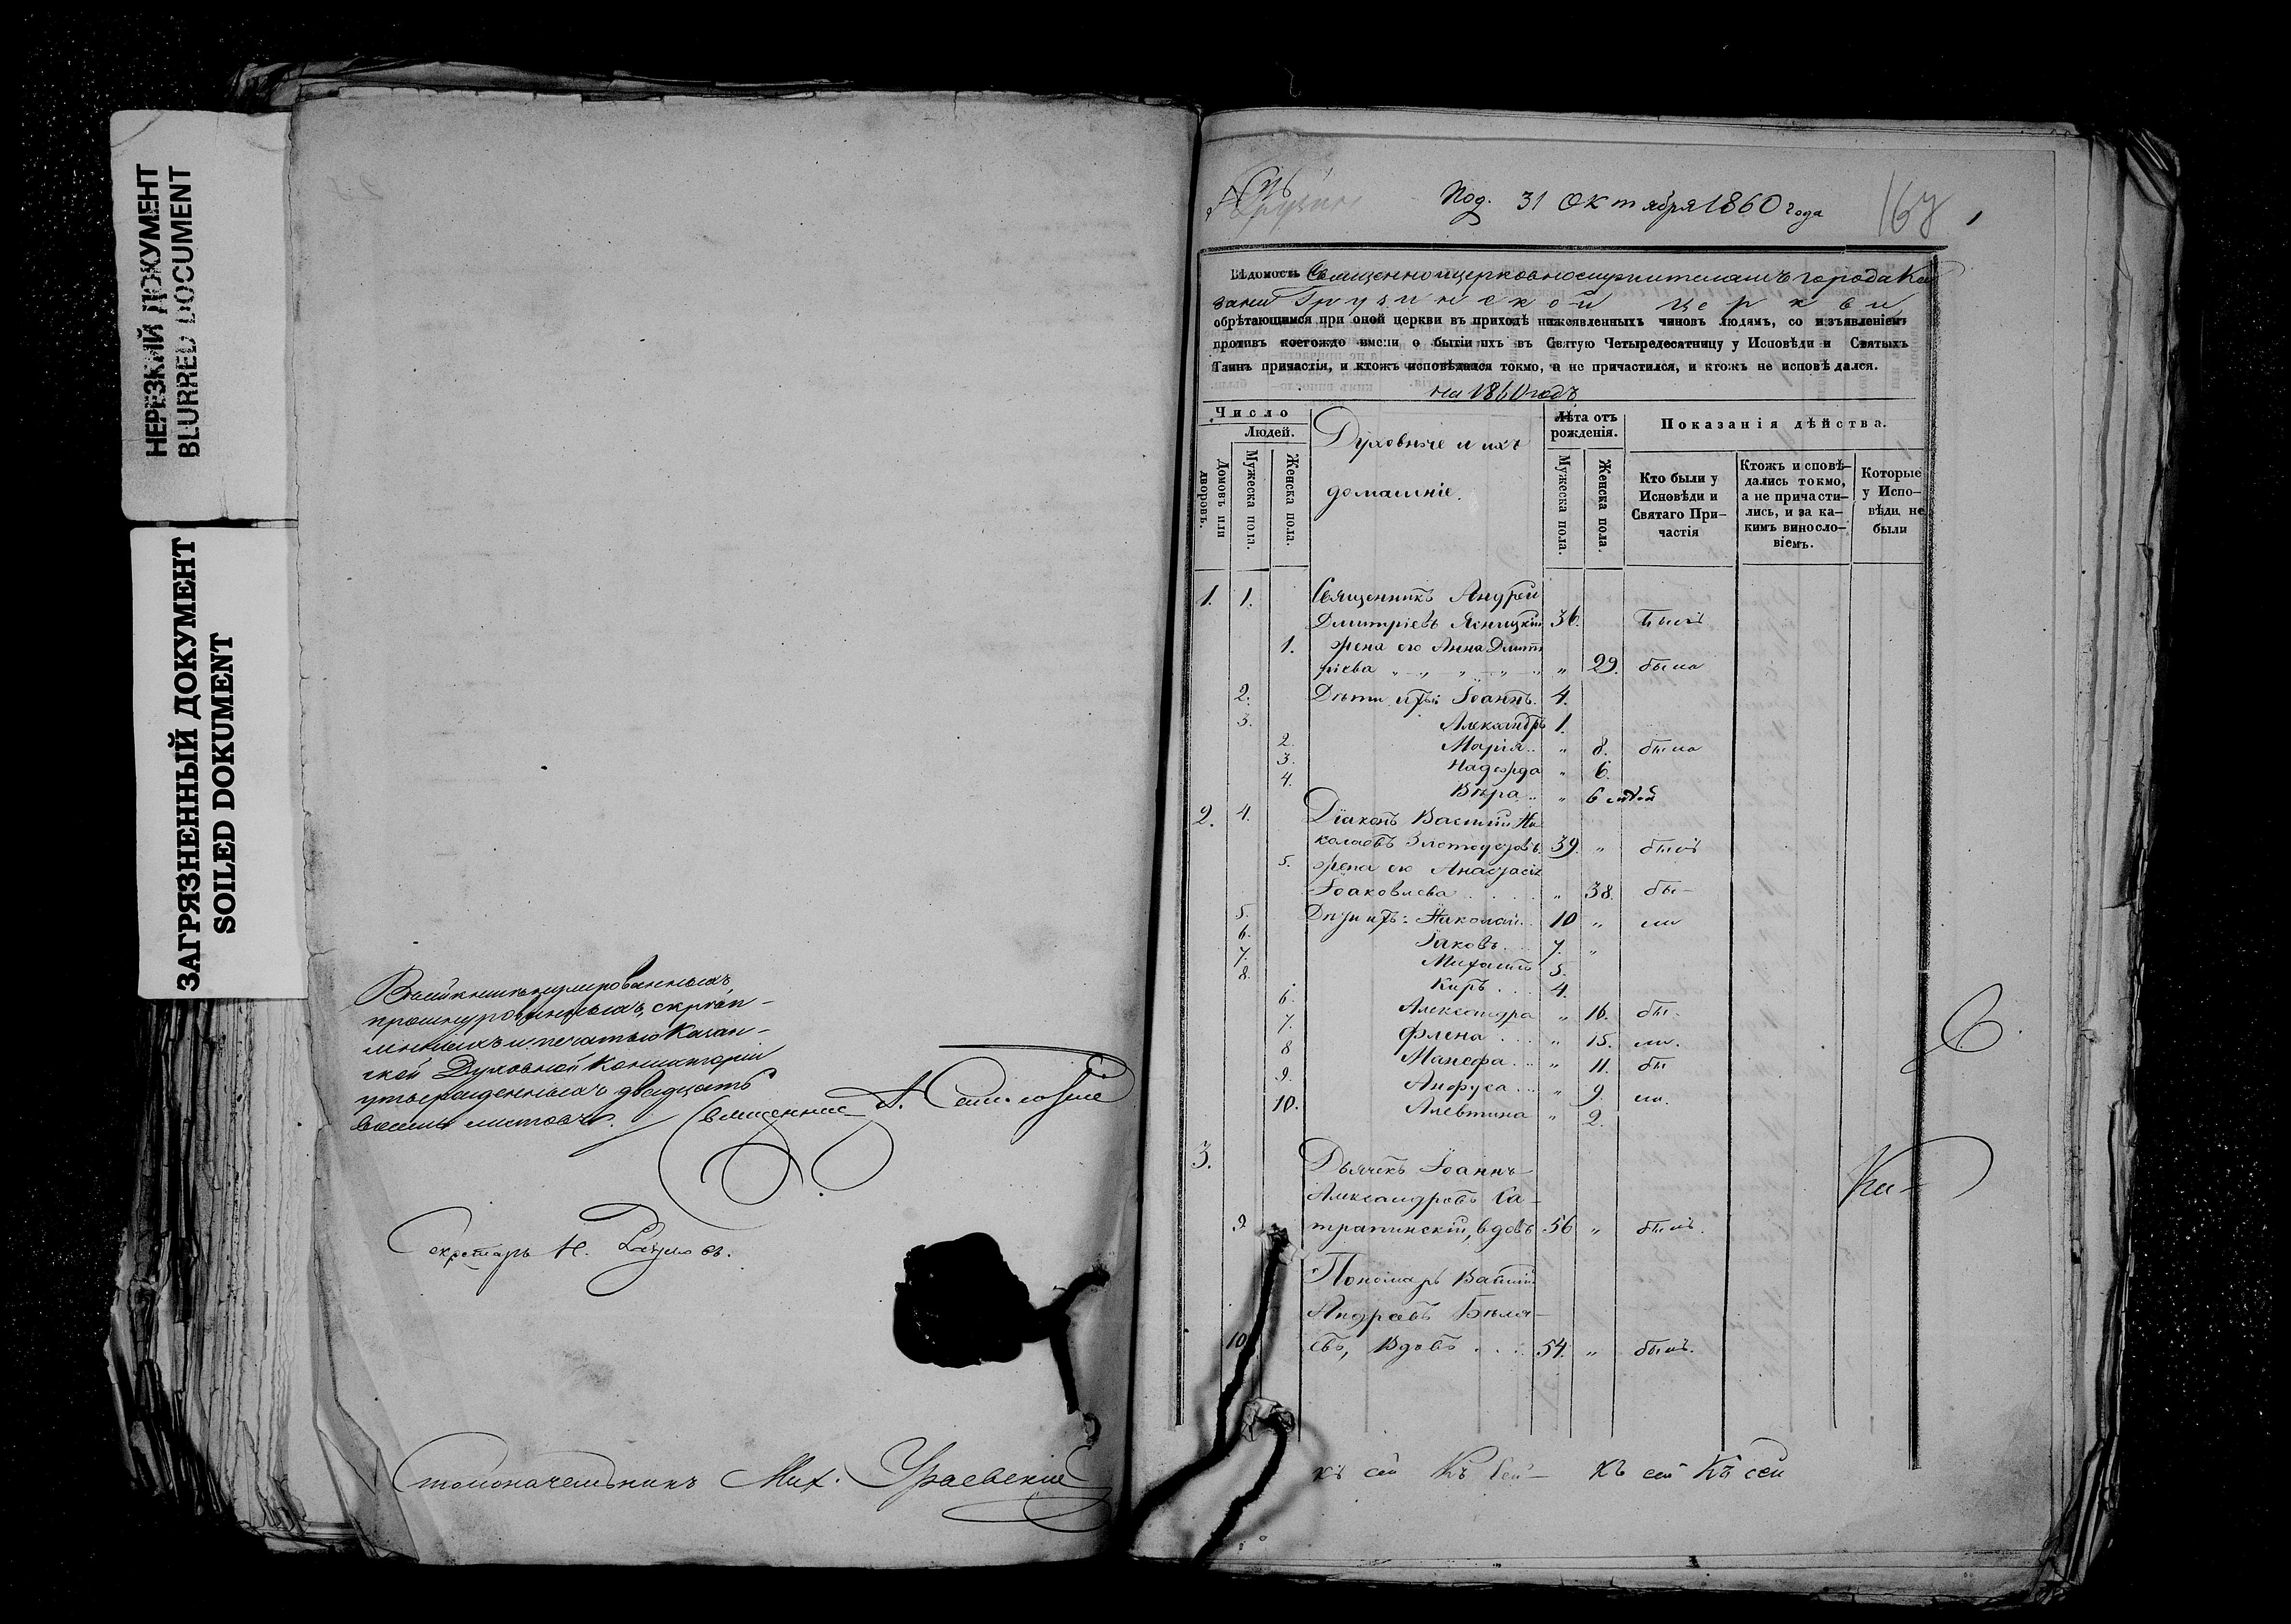 НЕРЕЗКИЙ ДОКУМЕНТ
BLURRED DOCUMENT
ЗАГРЯЗНЕННЫЙ ДОКУМЕНТ
SOILED DOKUMENT
прошнурованныхъ, скрѣп-
ленныхъ и печатью Казан-
ской Духовной Консисторіи
утвержденныхъ двадцать
восемь листовъ.
Священникъ А.
Секретарь Н.
Столоначальникъ Мих. Ураевскій
Под. 31 Октября 1860 года
167
Вѣдомость Священноицерковнослужителямъ города Ка
зани Грузинской церкви
обрѣтающимся при оной церкви въ приходѣ нижеявленныхъ чиновъ людямъ, со изъявленіемъ
противъ коегождо имени о бытіи ихъ въ Святую Четыредесятницу у Исповѣди и Святыхъ
Таинъ причастія, и ктожъ исповѣдался токмо, а не причастился, и ктожъ не исповѣдался.
на 1860 годъ
Число
Людей.
Домовъ или дворовъ.
Мужеска пола.
Женска пола.
Духовные и ихъ
домашніе.
Лѣта отъ рожденія.
Мужеска пола.
Женска пола.
Показанія дѣйства.
Кто были у Исповѣди и Святаго Причастія
Ктожъ исповѣ-дались токмо, а не причасти-лись, и за ка-кимъ винословіемъ.
Которые у Испо-вѣди не были
1. 1. Священникъ Андрей
Дмитріевъ Ясницкій 36. былъ
1. жена его Анна Дмит
ріева „ 29. была
2. Дѣти ихъ: Іоаннъ. 4.
3. Александръ 1.
2. Марія „ 8. была
3. Надежда „ 6.
4. Вѣра „ 6
2. 4. Діаконъ Василій Ни
колаевъ 39. „ былъ
5. жена его Анастасія
Іоаковлева „ 38. бы-
5. Дѣти ихъ: Николай 10 „ ли
6. Іаковъ 7. „
7. Михаилъ 5.
8. Киръ 4.
6. Александра „ 16. бы-
7. Флена „ 15. ли.
8 Манефа „ 11. бы
9. Анфуса „ 9. ли.
10. Алевтина „ 2.
3. Дьячекъ Іоаннъ
Александровъ Са-
9 трапинскій, вдовъ 56 „ былъ.
Пономарь Василій
Андреевъ Бѣля-
10 евъ, вдовъ 54. „ былъ.
Къ сей Къ сей Къ сей Къ сей